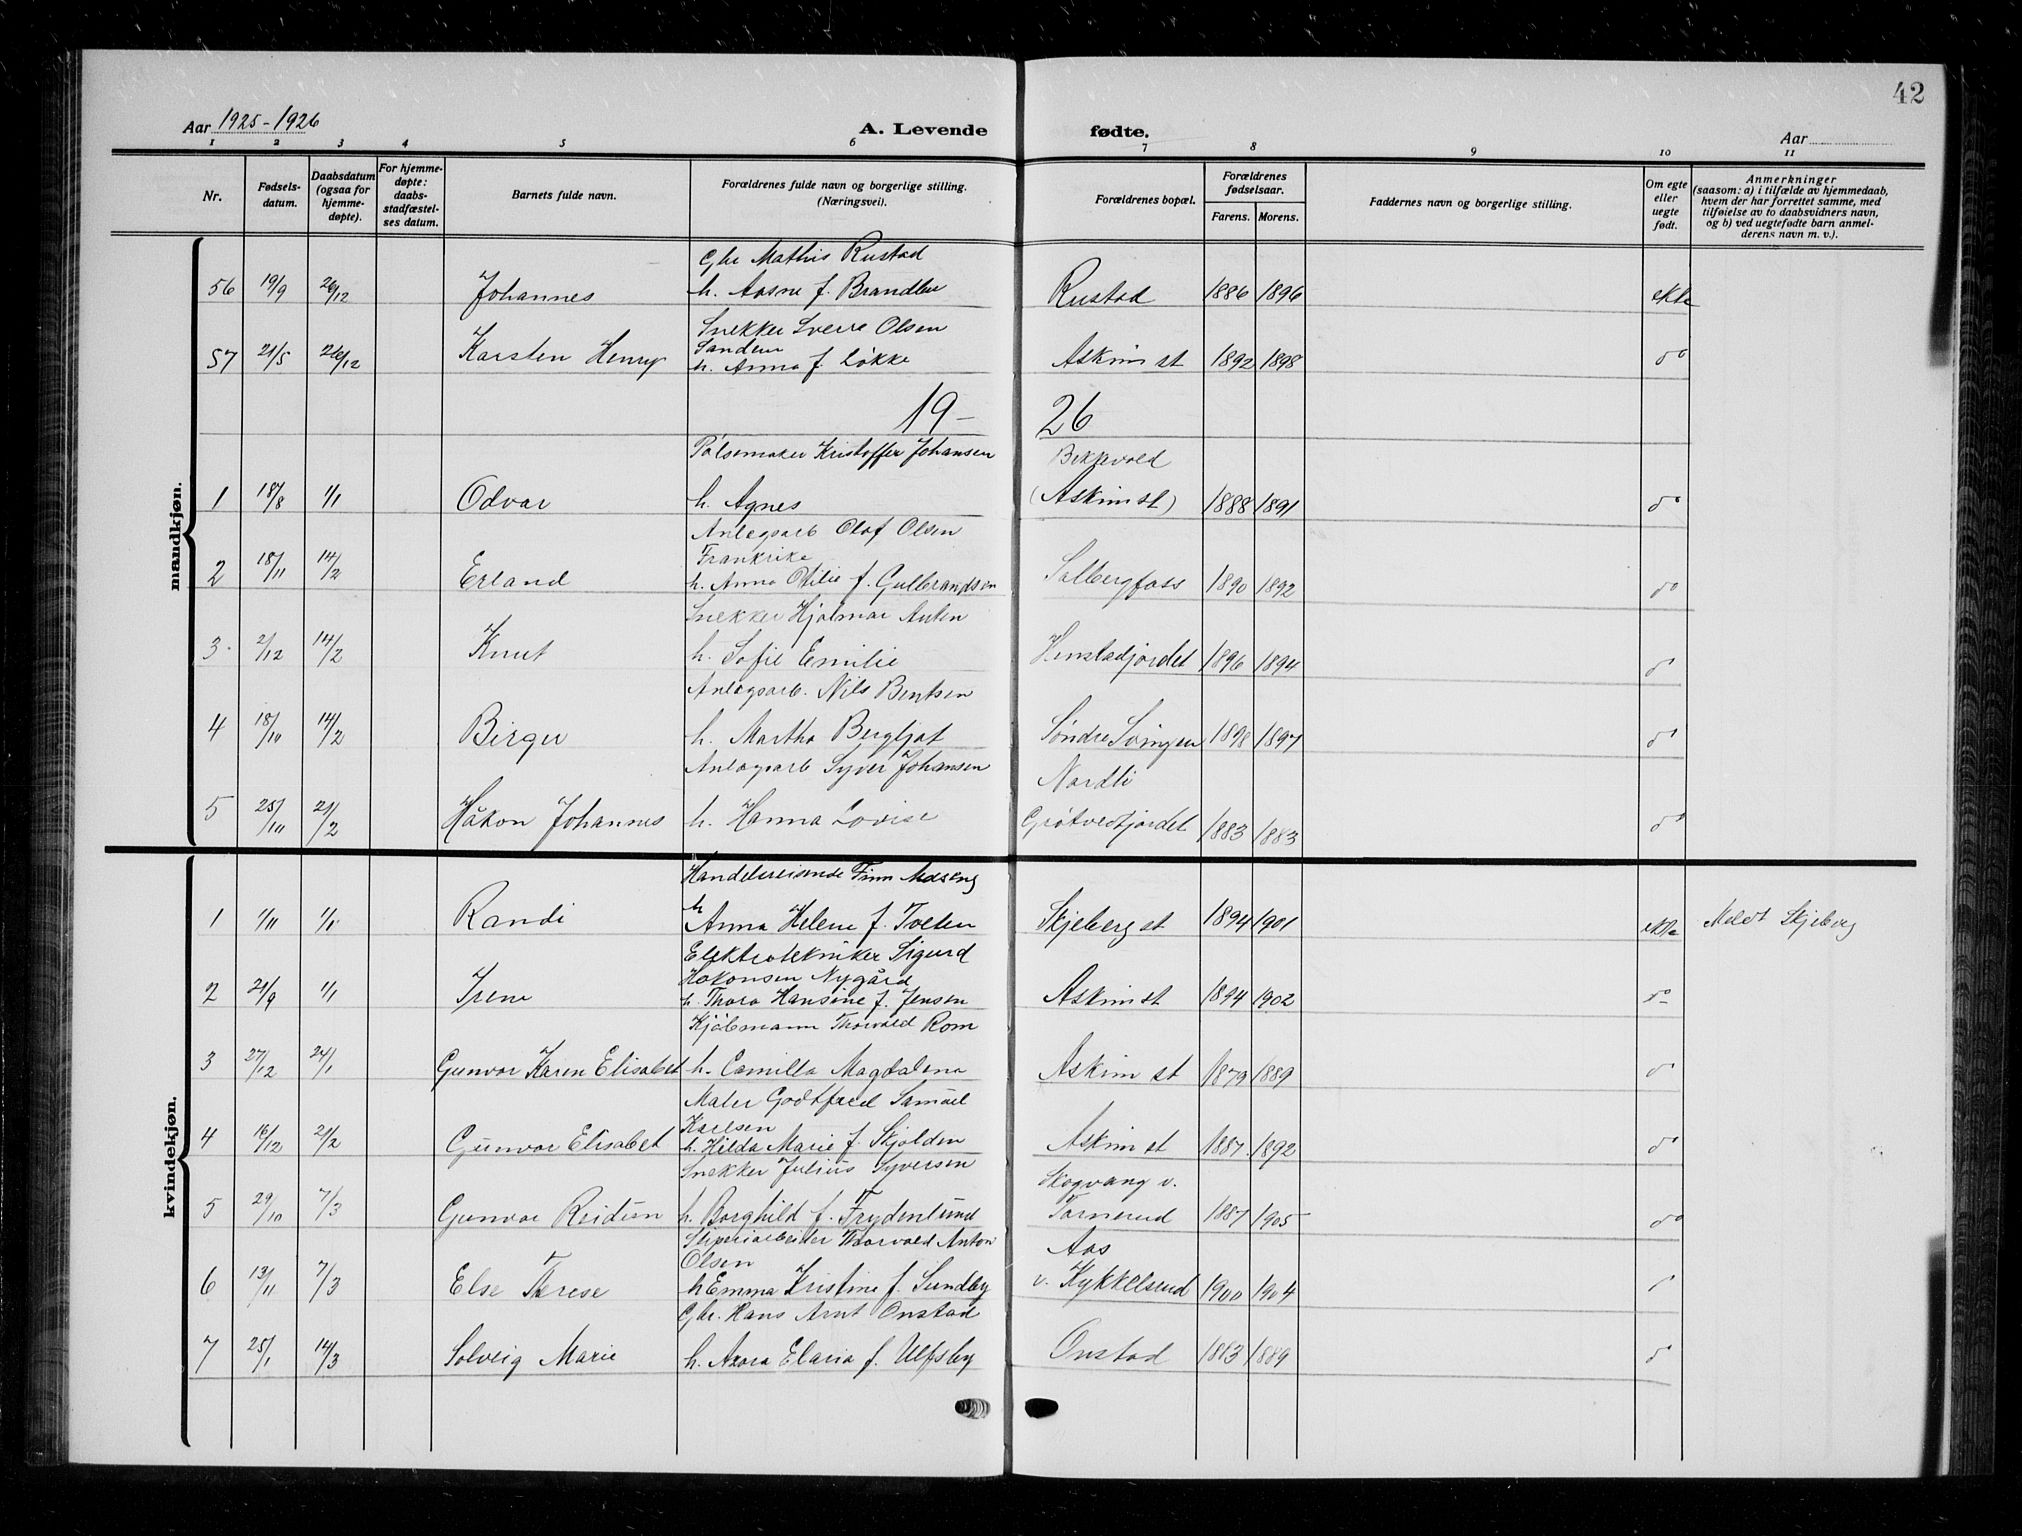 42
Aar 1925-1926
A. Levende
fødte.
Aar
1 2 3 4 5 6 7 8 9 10 11
Nr.
Fødsels-
datum.
Daabsdatum
(ogsaa for
hjemme-
døpte).
For hjemme-
døpte:
daabs-
stadfæstel-
ses datum.
Barnets fulde navn.
Forældrenes fulde navn og borgerlige stilling.
(Næringsvei).
Forældrenes bopæl.
Forældrenes
fødselsaar.
Farens. Morens.
Faddernes navn og borgerlige stilling.
Om egte
eller
uegte
født.
Anmerkninger
(saasom: a) i tilfælde av hjemmedaab,
hvem der har forrettet samme, med
tilføielse av to daabsvidners navn,
og b) ved uegtefødte barn anmel-
derens navn m. v.).
mandkjøn.
Gbr Mathis Rustad
56 19/9 26/12 Johannes h. Aasne f. Brandbu Rustad 1886 1896 ekte
Snekker Sverre Olsen
Sandem
57 21/5 26/12 Karsten Henry h. Anna f. Løkke Askim st 1892 1898 do
19- 26
Pølsemaker Kristoffer Johansen Bekkvold
1 18/8 1/1 Odvar h. Agnes (Askim st) 1888 1891 do
Anlegsarb Olaf Olsen
Frankrike
2 18/11 14/2 Erland h. Anna Otilie f. Gulbrandsen Solbergfoss 1890 1892 do
Snekker Hjalmar Anten
3 2/12 14/2 Knut h. Sofie Emilie Henstadjordet 1896 1894 do
Anlegsarb. Nils Bentsen
4 18/10 14/2 Birger h. Martha Bergljot Søndre Svingen 1898 1897 do
Anlegsarb Syver Johansen Nordli
5 25/10 21/2 Håkon Johannes h. Hanna Lovise Grøtvedtjordet 1883 1883 do
kvindekjøn.
Handelsreisende Finn Moseng
1 1/11 1/1 Randi h Anna Helene f. Tveten Skjeberg st 1894 1901 ekte Meldt Skjeberg
Elektrotekniker Sigurd
Hakonsen Nygård
2 21/9 1/1 Irene h. Thora Hansine f. Jensen Askim st 1894 1902 do
Kjøbmann Thorvald Rom
3 27/12 24/1 Gunvor Karen Elisabet h. Camilla Magdalena Askim st 1879 1889 do
Maler Godtfred Samuel
Karlsen
4 16/12 21/2 Gunvor Elisabet h. Hilda Marie f. Skjolden Askim st 1887 1892 do
Snekker Julius Syversen Skogvang v.
5 29/10 7/3 Gunvor Reidun h. Borghild f. Frydenlund Tornerud 1887 1905 do
Sliperiarbeider Thorvald Anton Aas
Olsen
6 13/11 7/3 Else Therese h Emma Kristine f. Sundby v. Kykkelsrud 1900 1904
Gbr. Hans Arnt Onstad
7 25/1 14/3 Solveig Marie h. Azora Elaria f. Ulfsby Onstad 1883 1889 do